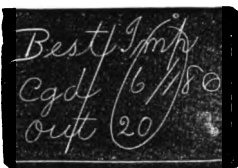 Best Imp
Cgd 6/1/86
out 20